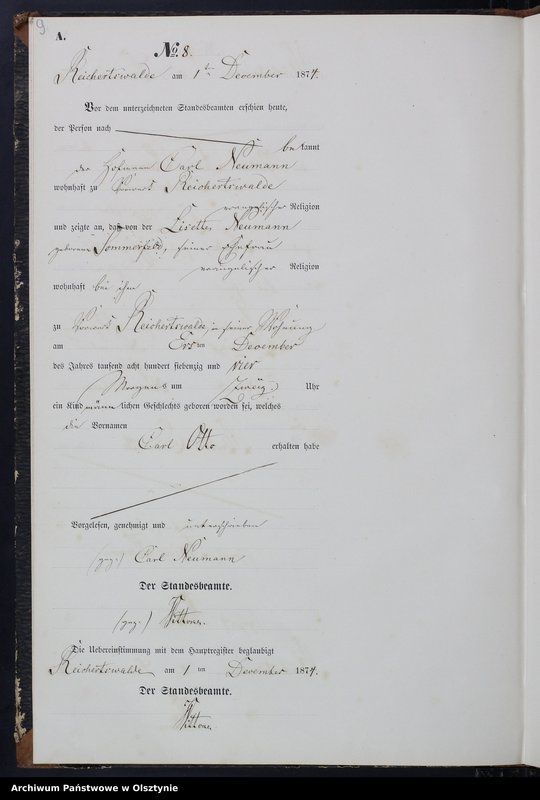 9
A.
No. 8.
Reichertswalde am 1ten December 1874.
Vor dem unterzeichneten Standesbeamten erschien heute,
der Person nach
bekannt
der Hofmann Carl Neumann
wohnhaft zu Vorwerk Reichertswalde
evangelischer Religion
und zeigte an, daß von der Lisette Neumann
geborene Sommerfeld, seiner Ehefrau
evangelischer Religion
wohnhaft bei ihm
zu Vorwerk Reichertswalde, in seiner Wohnung
am Ersten December
des Jahres tausend acht hundert siebenzig und vier
Morgens um Uhr
ein Kind männlichen Geschlechts geboren worden sei, welches
die Vornamen
Carl Otto erhalten habe
Vorgelesen, genehmigt und unterschrieben
(gez.) Carl Neumann
Der Standesbeamte.
(gez.)
Die Uebereinstimmung mit dem Hauptregister beglaubigt
Reichertswalde am 1ten December 1874.
Der Standesbeamte.
Archiwum Państwowe w Olsztynie